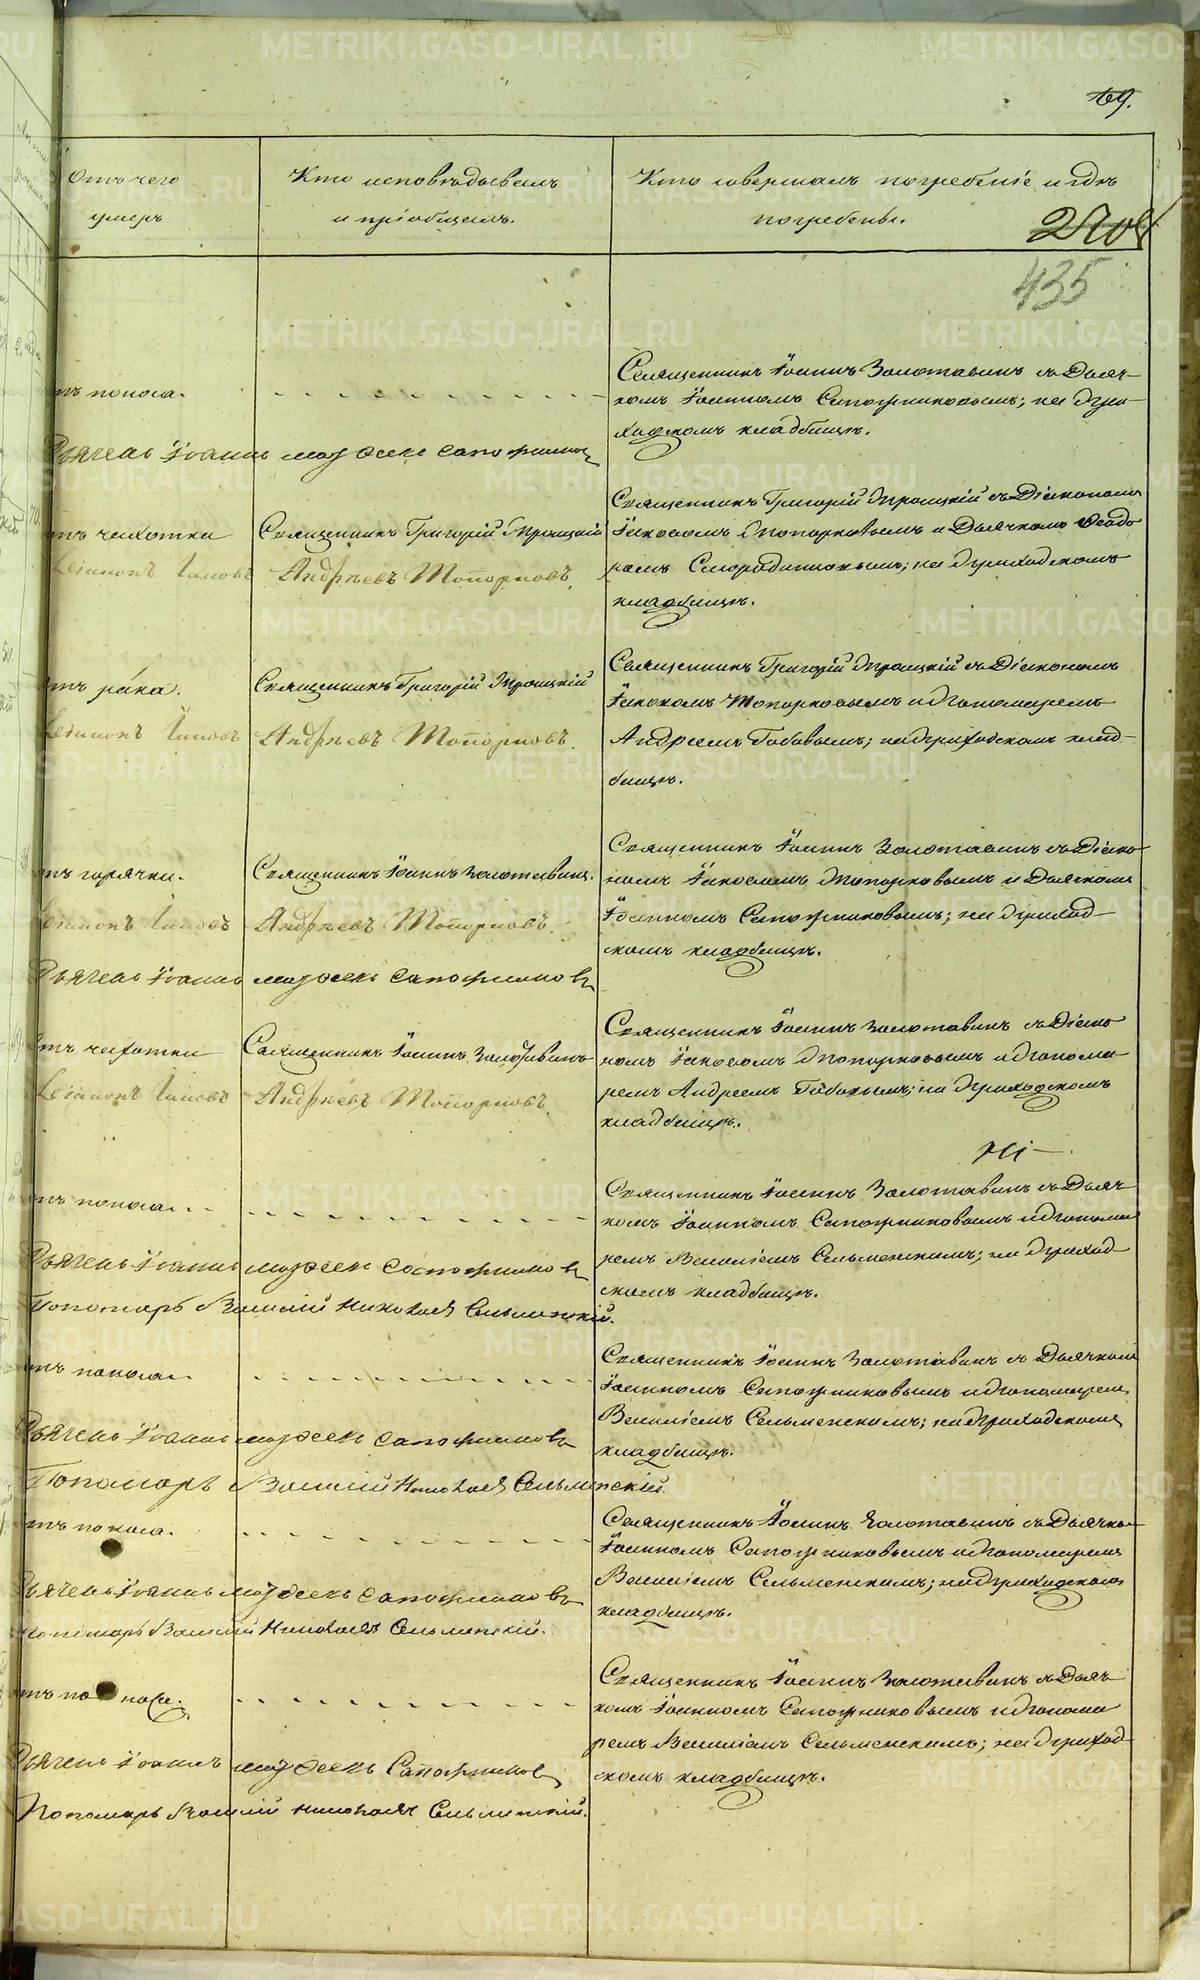 69.
Отъ чего
умеръ
Кто исповѣдывалъ
и пріобщалъ.
Кто совершалъ погребеніе и гдѣ
погребены.
435
отъ поноса.
Священникъ Іоаннъ Золотавинъ съ Дьяч-
комъ Іоанномъ Сапожниковымъ; на при-
ходскомъ кладбищѣ.
Дьячекъ Іоаннъ Сапожниковъ
отъ чахотки
Священникъ Григорій Троицкій
Священникъ Григорій Троицкій съ Діакономъ
Іаковомъ Топорковымъ и Дьячкомъ Ѳеодо
ромъ Смородинцовымъ; на приходскомъ
кладбищѣ.
Діаконъ Іаковъ Андрѣевъ Топорковъ.
отъ рака.
Священникъ Григорій Троицкій
Священникъ Григорій Троицкій съ Діакономъ
Іаковомъ Топорковымъ и Пономаремъ
Андреемъ Бабовымъ; на приходскомъ клад-
бищѣ.
Діаконъ Іаковъ Андрѣевъ Топорковъ.
отъ горячки.
Священникъ Іоаннъ Золотавинъ.
Священникъ Іоаннъ Золотавинъ съ Діако
номъ Іаковомъ Топорковымъ и Дьячкомъ
Іоанномъ Сапожниковымъ; на приход-
скомъ кладбищѣ.
Діаконъ Іаковъ Андрѣевъ Топорковъ.
Дьячекъ Іоаннъ Сапожниковъ
Отъ чахотки
Священникъ Іоаннъ Золотавинъ
Священникъ Іоаннъ Золотавинъ съ Діако
номъ Іаковомъ Топорковымъ и Понома
ремъ Андреемъ Бабовымъ; на приходскомъ
кладбищѣ.
Діаконъ Іаковъ Андрѣевъ Топорковъ.
отъ поноса
Священникъ Іоаннъ Золотавинъ съ Дьяч
комъ Іоанномъ Сапожниковымъ и Понома
ремъ Василіемъ Сельменскимъ; на приход
скомъ кладбищѣ.
Дьячекъ Іоаннъ Сапожниковъ
Пономарь Василій Николаев Сельменскій.
отъ поноса
Священникъ Іоаннъ Золотавинъ съ Дьячкомъ
Іоанномъ Сапожниковымъ и Пономаремъ
Василіемъ Сельменскимъ; на приходскомъ
кладбищѣ.
Дьячекъ Іоаннъ Сапожниковъ
Пономарь Василій Николаев Сельменскій.
отъ поноса.
Священникъ Іоаннъ Золотавинъ съ Дьячко-
Іоанномъ Сапожниковымъ и Пономаремъ
Василіемъ Сельменскимъ; на приходскомъ
кладбищѣ.
Дьячекъ Іоаннъ Сапожниковъ
Пономарь Василій Николаевъ Сельменскій.
отъ поноса.
Священникъ Іоаннъ Золотавинъ съ Дьяч
комъ Іоанномъ Сапожниковымъ и Понома
ремъ Василіемъ Сельменскимъ; на приход-
скомъ кладбищѣ.
Дьячекъ Іоаннъ Сапожников
Пономарь Василій Николаевъ Сельменскій.
METRIKI.GASO-URAL.RU